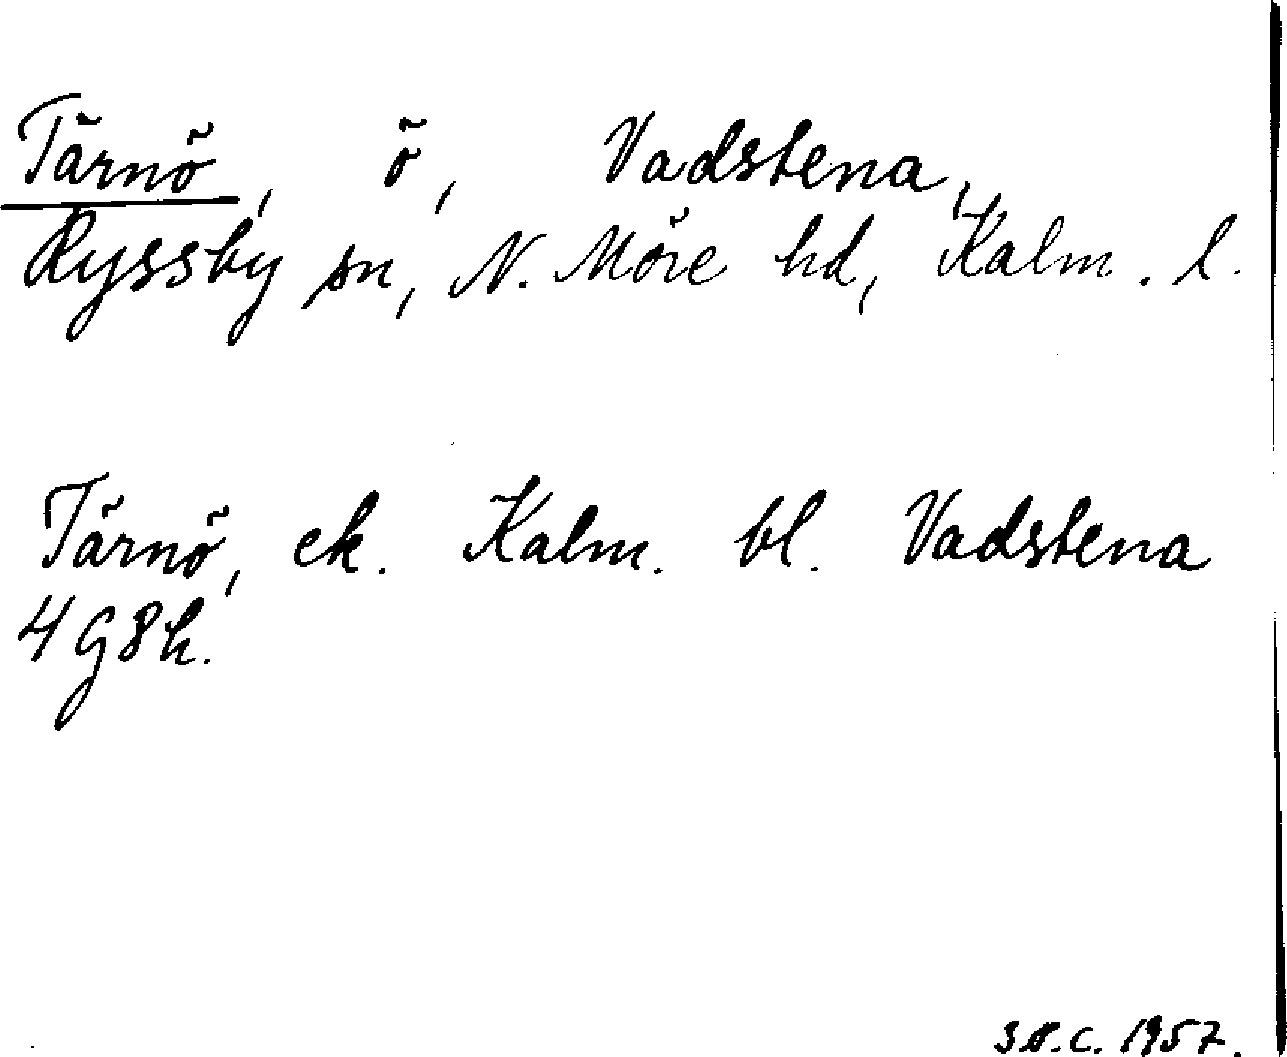 Tärnö, ö, Vadstena,
Ryssby sn, N. Möre hd, Kalm. l.
Tärnö, ek. Kalm. bl. Vadstena
4 g 8 h.
1957.